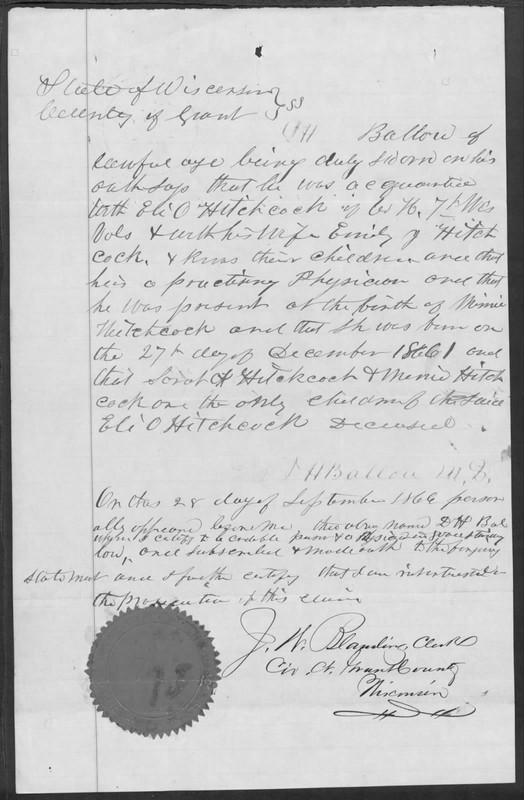 State of Wisconsin
County of Grant } SS
H Ballou of
lawful age being duly sworn on his
oath says that he was acquainted
with Eli O Hitchcock of Co H. 7th Wis
Vols & with his wife Emily J Hitch
cock, & knows their children and that
he is a practicing Physician and that
he was present at the birth of Minnie
Hitchcock and that she was born on
the 27th day of December 1861 and
that Sarah A Hitchcock & Minnie Hitch
cock are the only children of the said
Eli O Hitchcock Deceased
H Ballou M.D.
On this 28 day of September 1866 person
ally appeared before me the above named D H Bal
whom I certify to be credible person & a Physician in practice
lou, and subscribed & made oath to the foregoing
statement and I further certify that I am disinterested in
the prosecution of this claim
J. W. Blanding Clerk
Cir Ct. Grant County
Wisconsin